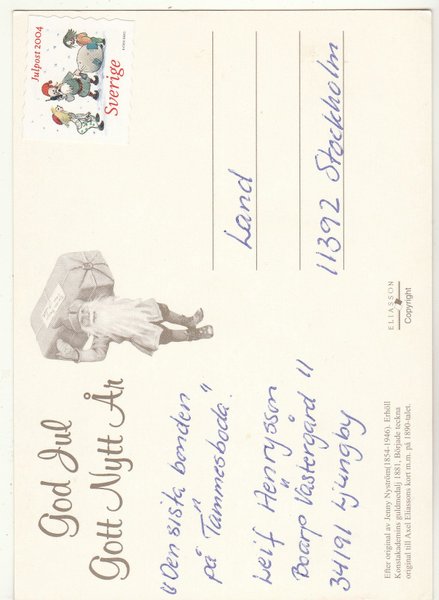 God Jul
Gott Nytt År
"Den sista bonden
på Tammesboda."
Leif Henrysson
Boarp Västergård 11
34191 Ljungby
Efter original av Jenny Nyström (1854-1946). Erhöll
Konstakademins guldmedalj 1881. Började teckna
original till Axel Eliassons kort m.m. på 1890-talet.
ELIASSON
Copyright
Julpost 2004
Sverige
Land
11392 Stockholm